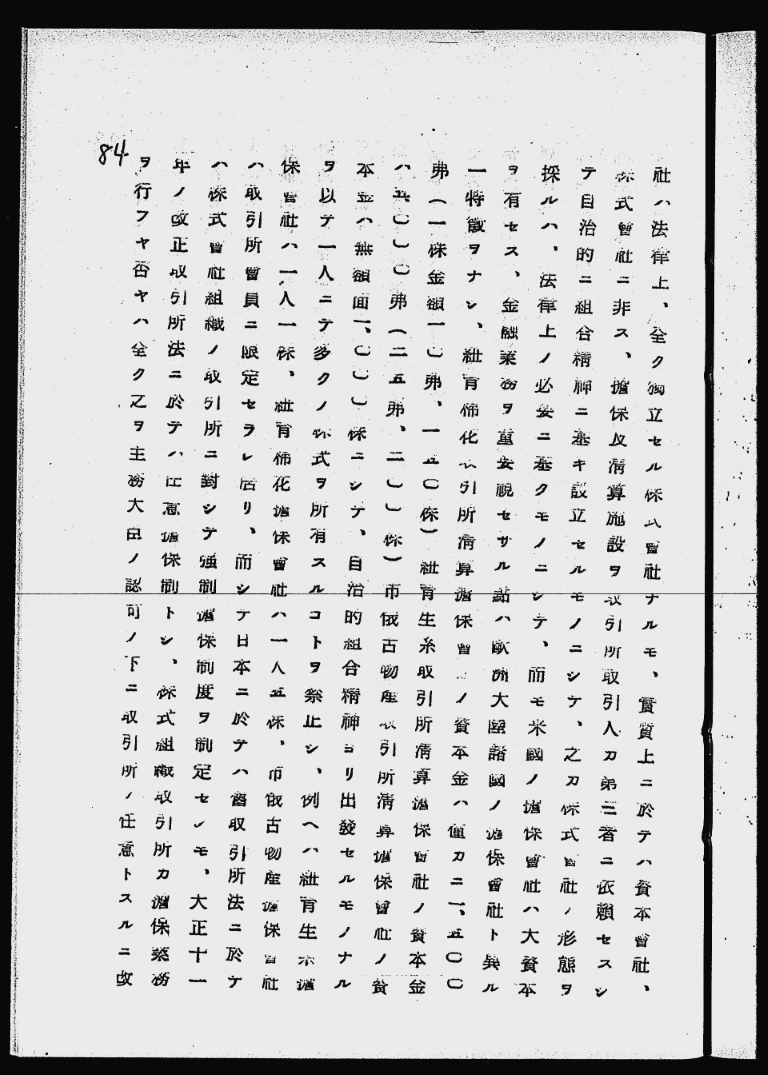 社ハ法律上、全ク獨立セル株式會社ナルモ、實質上ニ於テハ資本會社、
株式會社ニ非ス、擔保及清算施設ヲ取引所取引人カ第三者ニ依頼セスシ
テ自治的ニ組合精神ニ基キ設立セルモノニシテ、之カ株式會社ノ形態ヲ
採ルハ、法律上ノ必要ニ基クモノニシテ、而モ米國ノ擔保會社ハ大資本
ヲ有セス、金融業務ヲ重要視セサル點ハ歐洲大陸諸國ノ擔保會社ト異ル
一特徴ヲナシ、紐育棉化取引所清算擔保會社ノ資本金ハ僅カニ二、五〇〇
弗(一株金額一〇弗、一五〇株)紐育生糸取引所清算擔保會社ノ資本金
ハ五、〇〇〇弗(二五弗、二〇〇株)市俄古物産取引所清算擔保會社ノ資
本金ハ無額面一、〇〇〇株ニシテ、自治的組合精神ヨリ出發セルモノナル
ヲ以テ一人ニテ多クノ株式ヲ所有スルコトヲ禁止シ、例ヘハ紐育生糸擔
保會社ハ一人一株、紐育棉花擔保會社ハ一人五株、市俄古物産擔保會社
ハ取引所會員ニ限定セラレ居リ、而シテ日本ニ於テハ舊取引所法ニ於テ
ハ株式會社組織ノ取引所ニ對シテ強制擔保制度ヲ制定セシモ、大正十一
年ノ改正取引所法ニ於テハ任意擔保制トシ、株式組織取引所カ擔保業務
ヲ行フヤ否ヤハ全ク之ヲ主務大臣ノ認可ノ下ニ取引所ノ任意トスルニ改
84